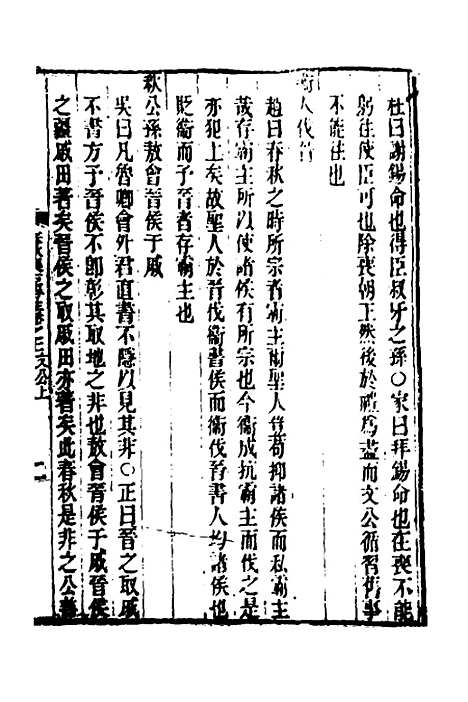 杜曰謝錫命也得臣叔牙之孫○家曰拜錫命也在喪不能
躬往使臣可也除喪朝王然後於禮爲盡而文公循習舊事
不能往也
衛人伐晉
趙曰春秋之時所宗者霸主爾聖人豈苟抑諸侯而私霸主
哉存霸主所以使諸侯有所宗也今衛成抗霸主而伐之是
亦犯上矣故聖人於晉伐衛書侯而衛伐晉書人均諸侯也
貶衛而予晉者存霸主也
秋公孫敖會晉侯于戚
吳曰凡魯卿會外君直書不隱以見其非○正曰晉之取戚
不書方予晉侯不卽彰其取地之非也敖會晉侯于戚晉侯
之疆戚田著矣晉侯之取戚田亦著矣此春秋是非之公
之三文公上